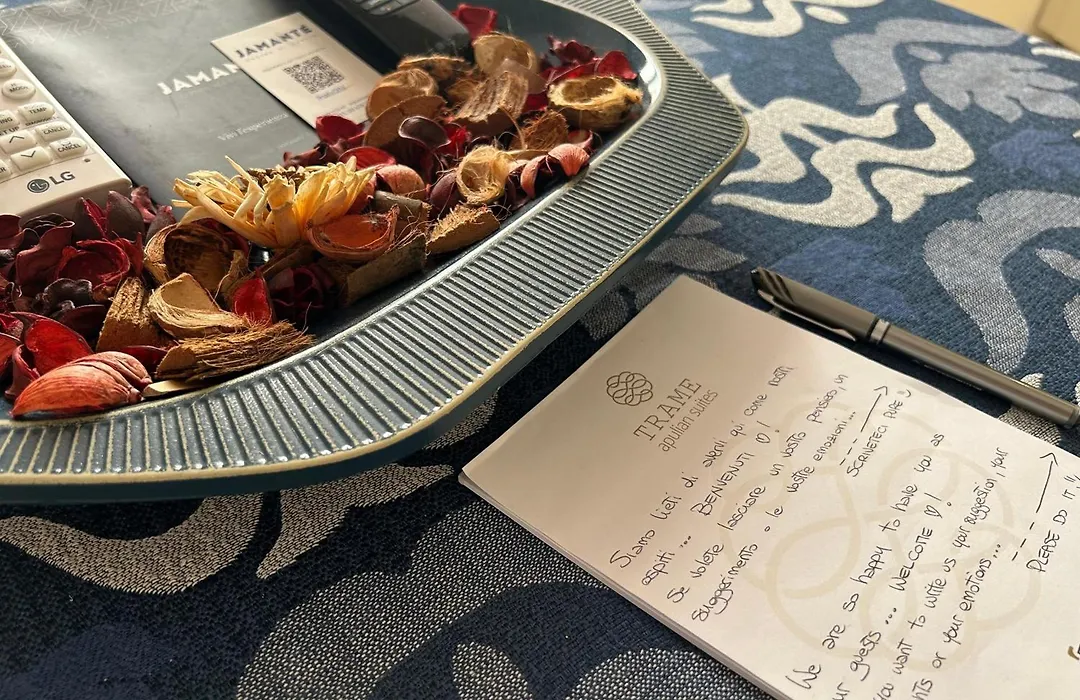 JAMANTÉ
JAMAN
Vivi l'esperienza
MODE
TEMP
CANCEL
CANCEL
LG
TRAME
apulian suites
Siamo lieti di averVi qui come nostri
ospiti ... BENVENUTI !
Se volete lasciare un vostro pensiero, un
suggerimento o le vostre emozioni...
SCRIVETECI PURE
We are so happy to have you as
ur guests ... WELCOME !
ou want to write us your suggestion, your
nts or your emotions...
PLEASE DO IT !!